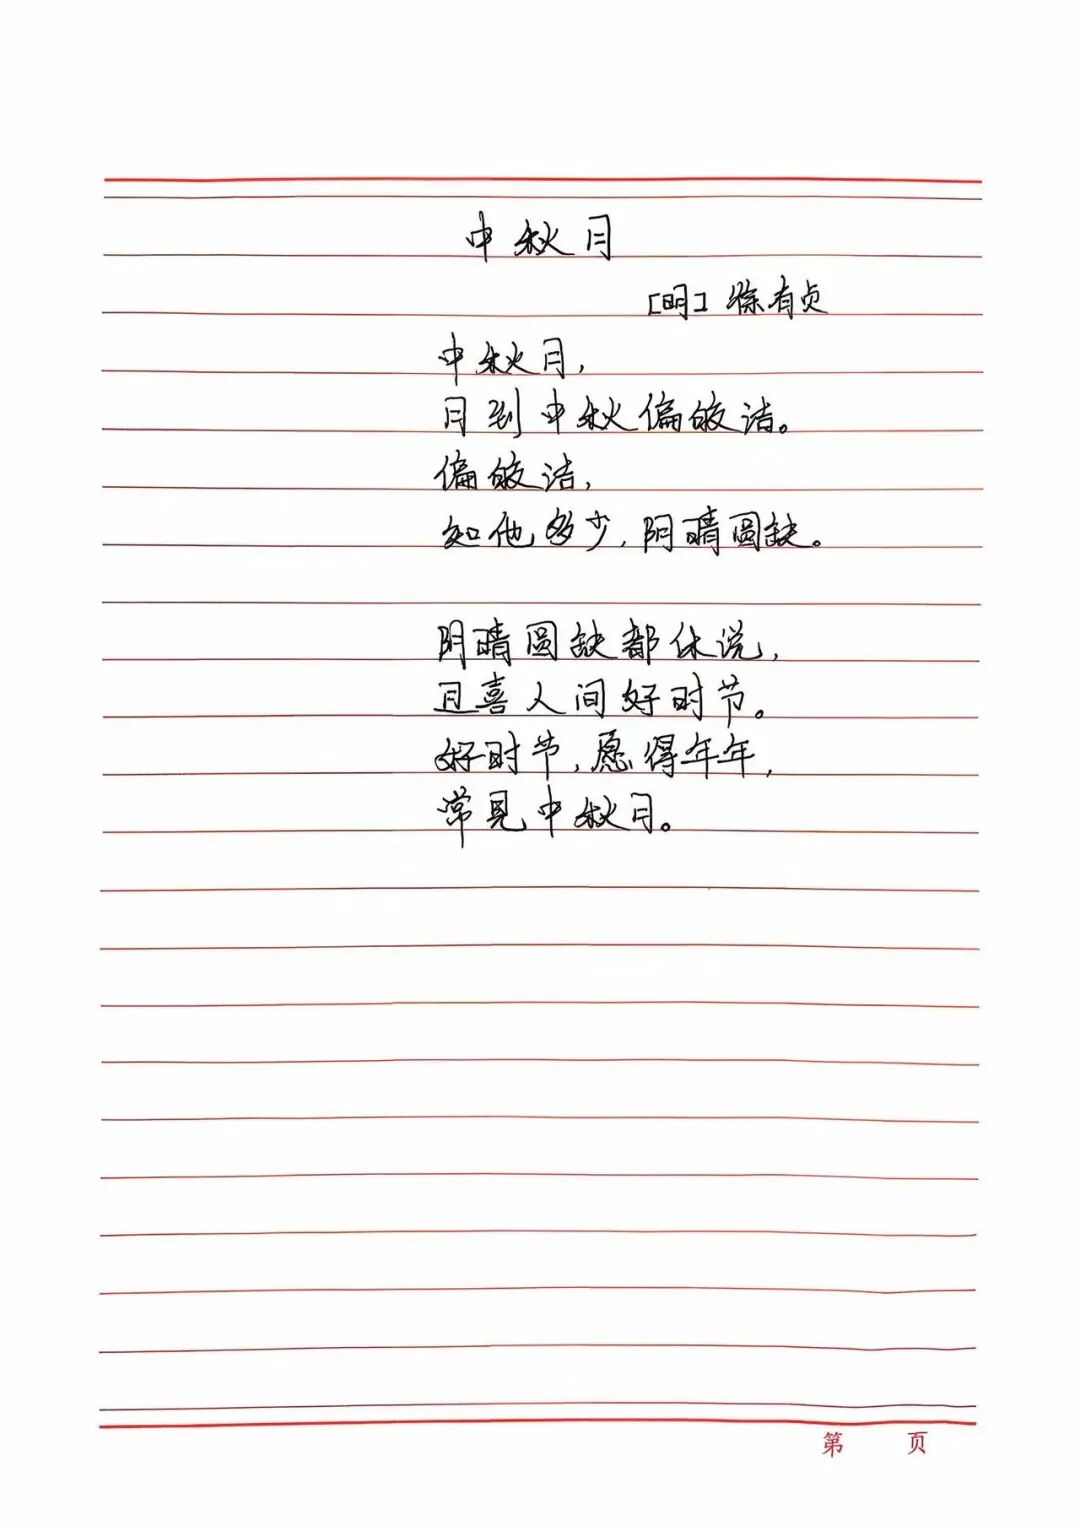 中秋月
[明] 徐有贞
中秋月，
月到中秋偏皎洁。
偏皎洁，
知他多少，阴晴圆缺。
阴晴圆缺都休说，
且喜人间好时节。
好时节，愿得年年，
常见中秋月。
第 页